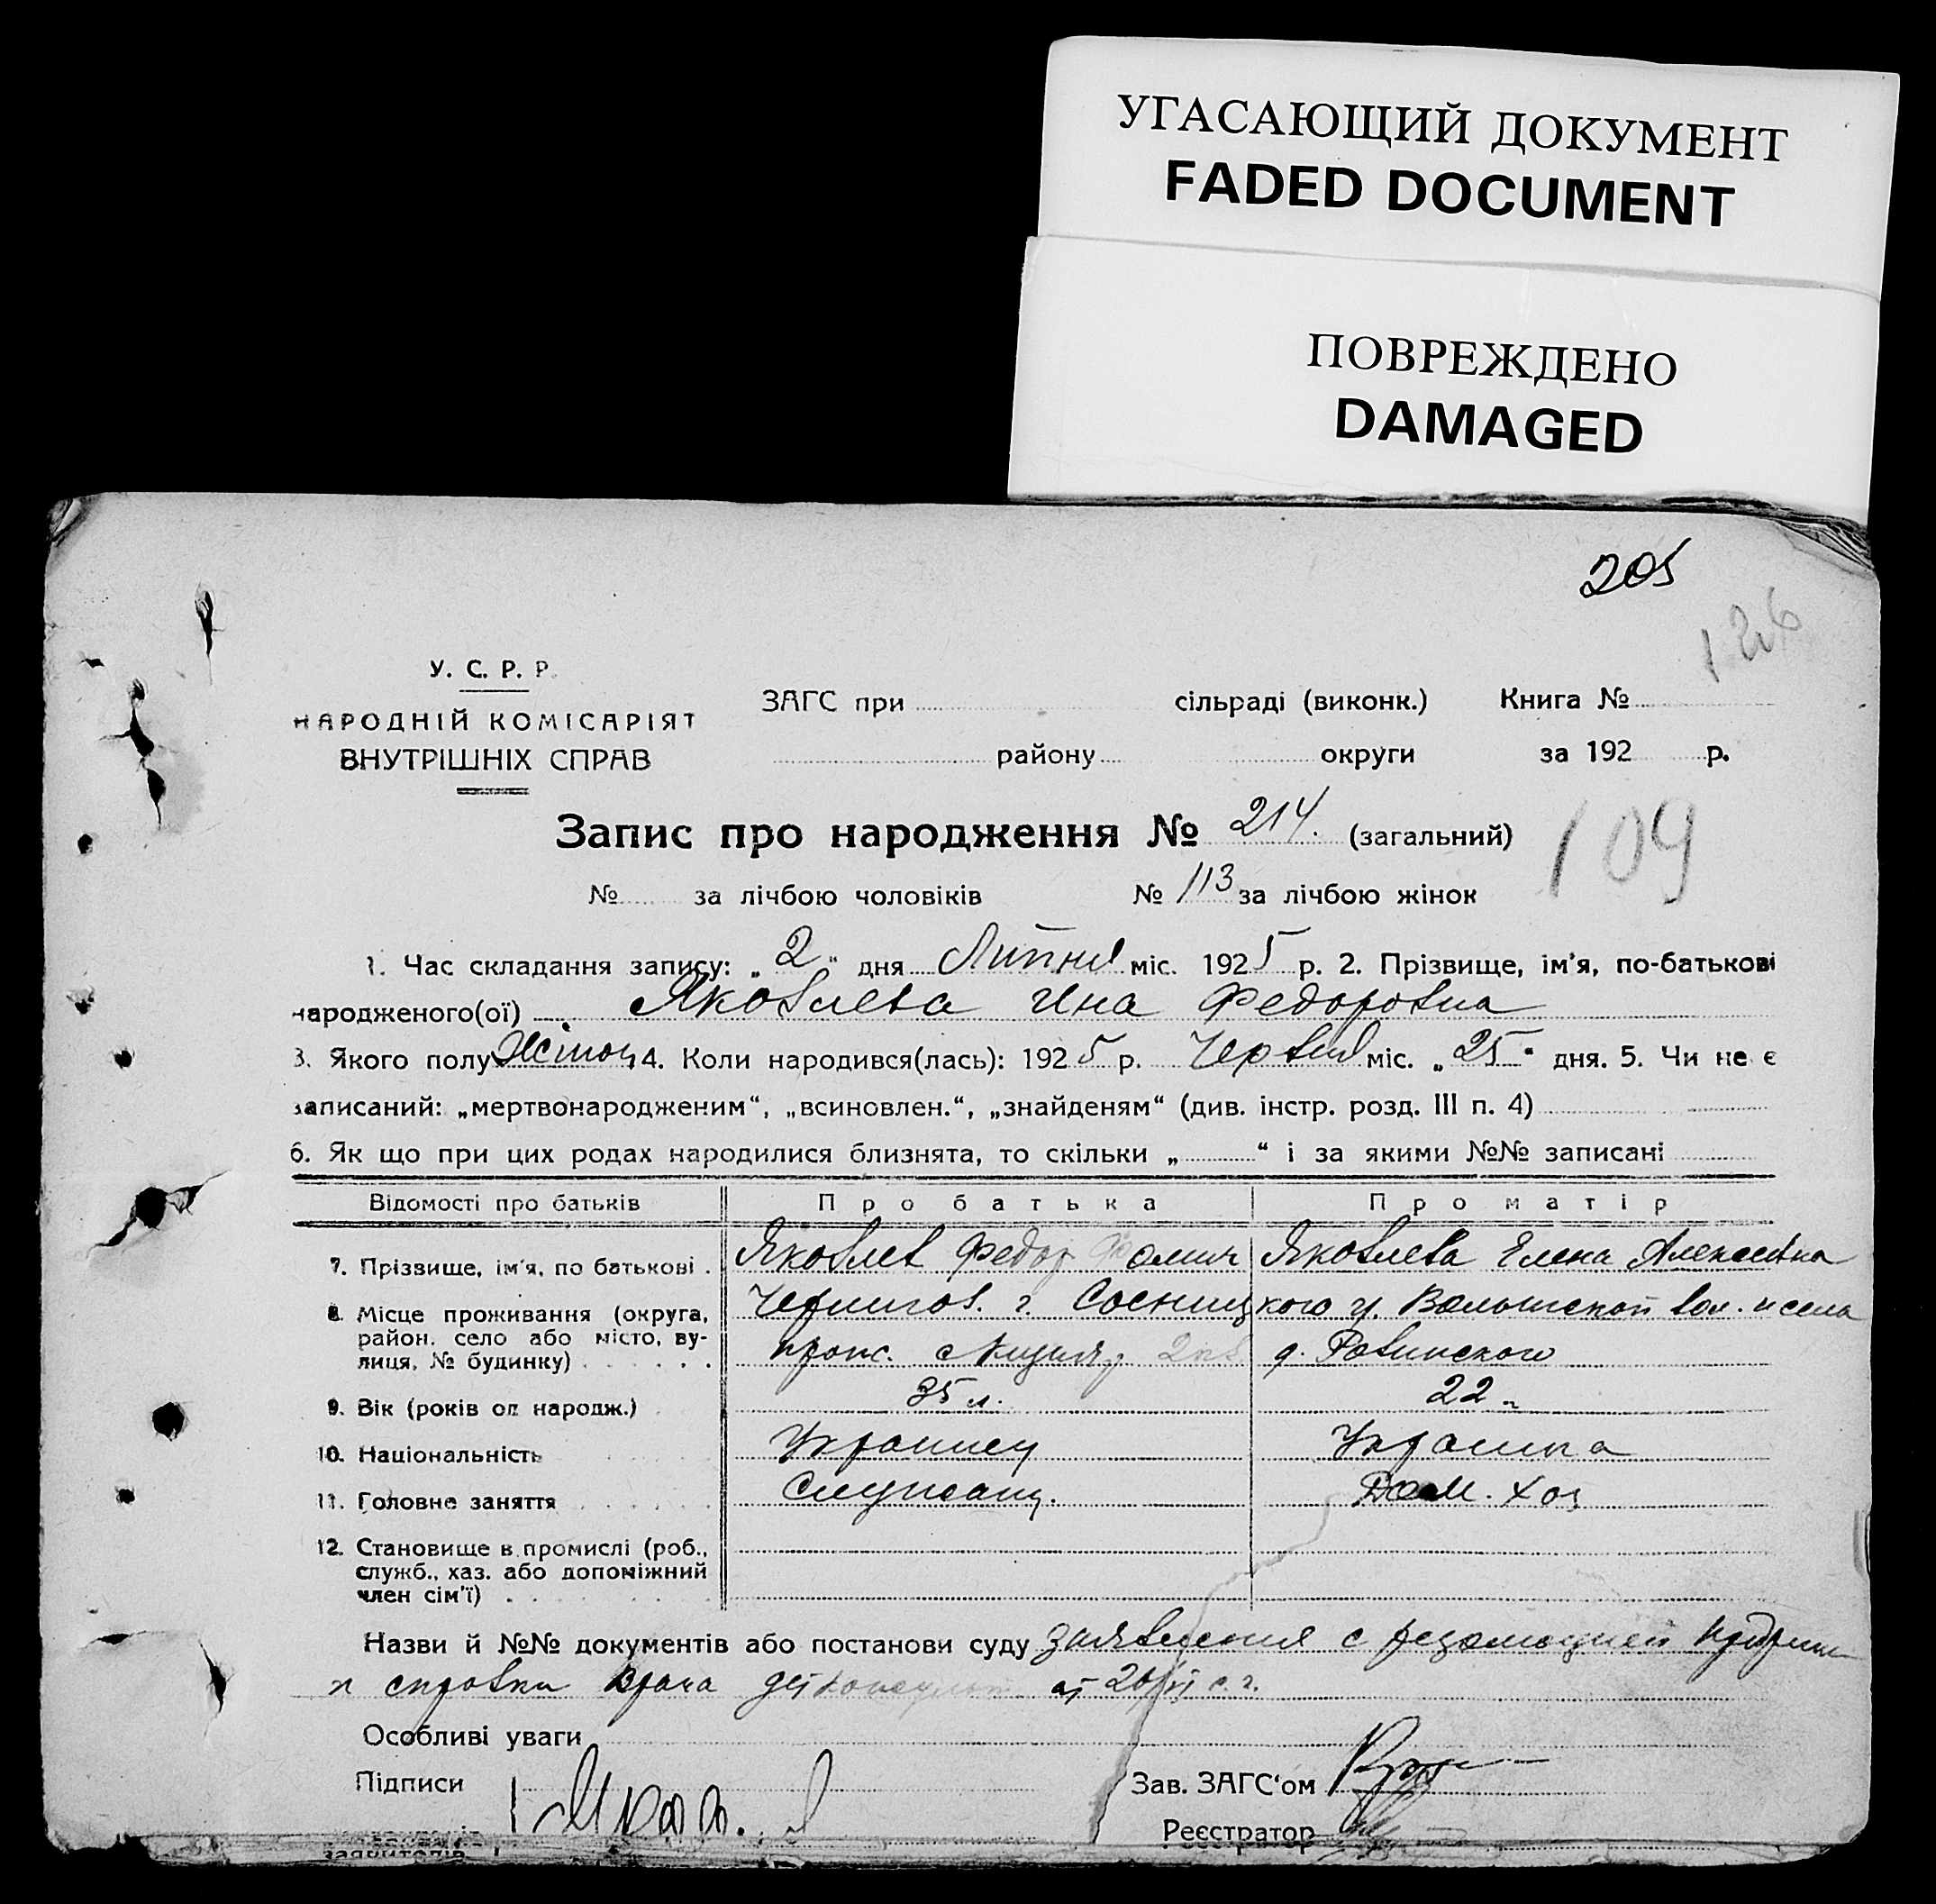 УГАСАЮЩИЙ ДОКУМЕНТ
FADED DOCUMENT
ПОВРЕЖДЕНО
DAMAGED
205
126
У. С. Р. Р.
НАРОДНІЙ КОМІСАРІЯТ
ВНУТРІШНІХ СПРАВ
ЗАГС при сільраді (виконк.) Книга №
району округи за 192 р.
Запис про народження № 214. (загальний)
109
№ за лічбою чоловіків № 113 за лічбою жінок
1. Час складання запису: „2“ дня Липня міс. 1925 р. 2. Прізвище, ім'я, по-батькові
народженого(ої) Яковлева Инна Федоровна
3. Якого полу Жіноч. 4. Коли народився(лась): 1925 р. Червня міс. „25“ дня. 5. Чи не є
записаний: „мертвонародженим“, „всиновлен.“, „знайденям“ (див. інстр. розд. III п. 4)
6. Як що при цих родах народилися близнята, то скільки „ “ і за якими №№ записані
Відомості про батьків Про батька Про матір
7. Прізвище, ім'я, по батькові . Яковлев Федор Фомич Яковлева Елена Алексеевна
8. Місце проживання (округа, Чернигов. г. Сосницкого у. Волынской вол. и села
район, село або місто, ву-
лиця, № будинку) . . . . . . прож. д. Ровинского
9. Вік (років од народж.) 35 л. 22
10. Національність Украинец Украинка
11. Головне заняття Служащ. Дом. хоз
12. Становище в промислі (роб.,
служб., хаз. або допоміжний
член сім'ї) . . . . . .
Назви й №№ документів або постанови суду заявления с резолюцией
и справки врача от 26/VI с. г.
Особливі уваги
Підписи
Зав. ЗАГС'ом
Реєстратор
заявителів